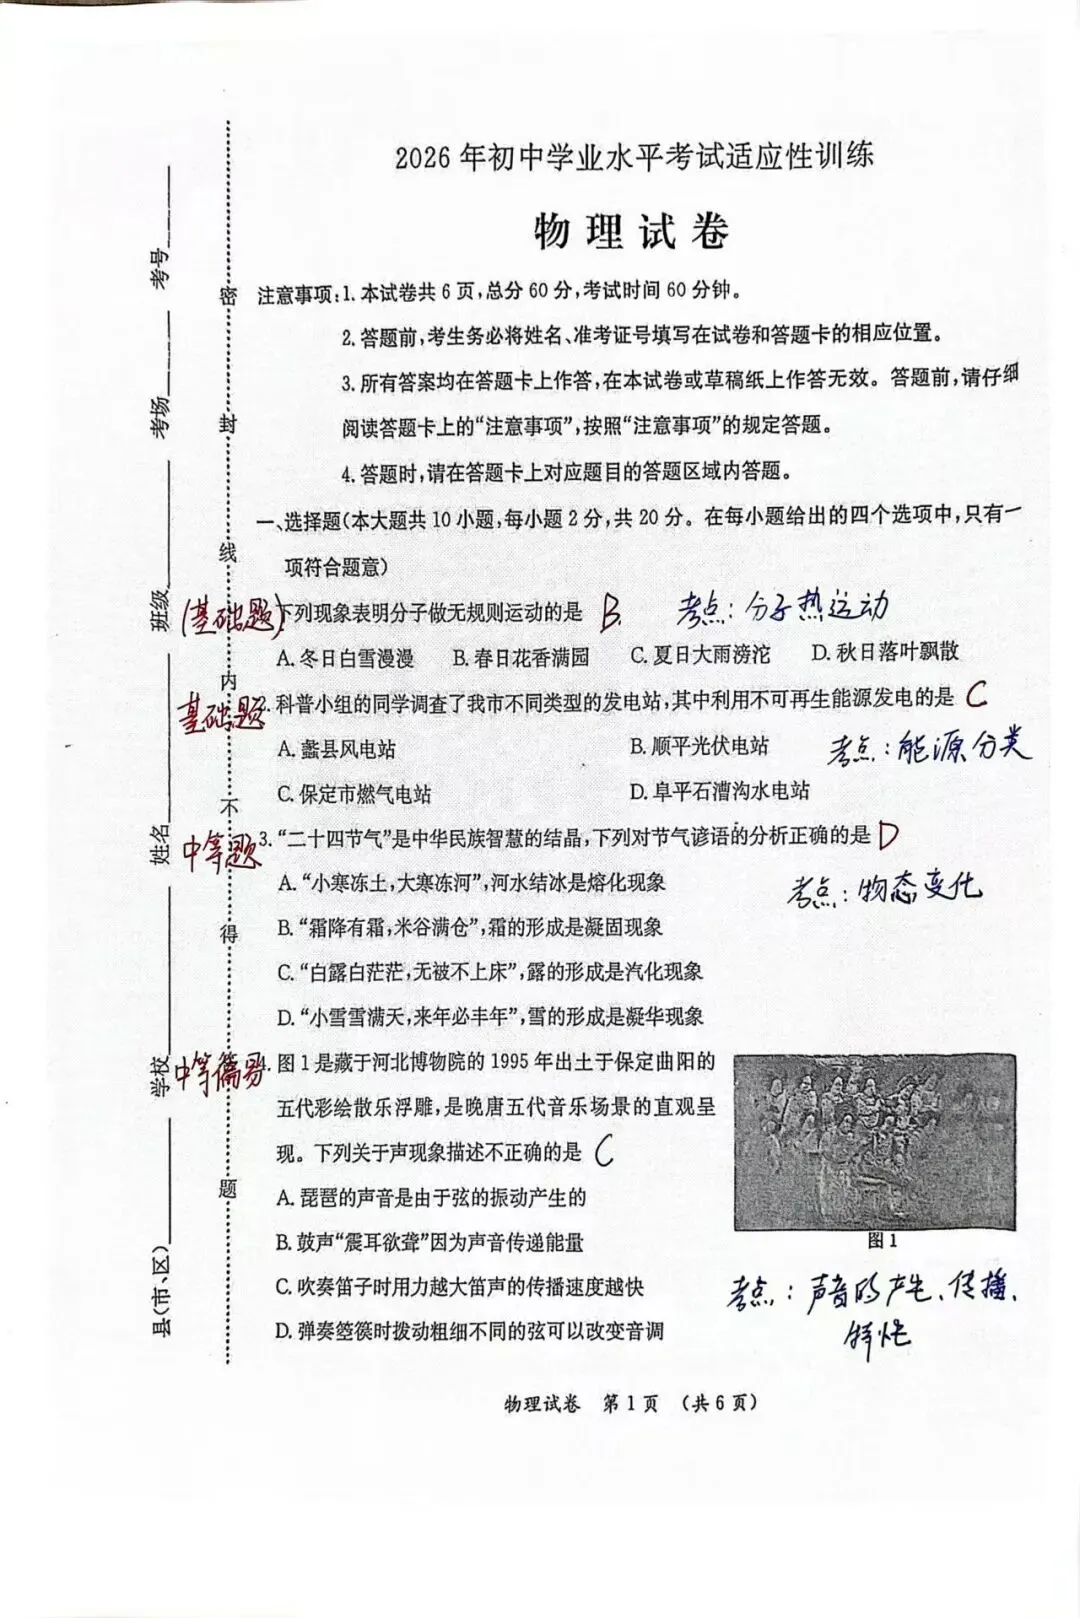 2026年初中学业水平考试适应性训练
物理试卷
注意事项:1.本试卷共6页,总分60分,考试时间60分钟。
2.答题前,考生务必将姓名、准考证号填写在试卷和答题卡的相应位置。
3.所有答案均在答题卡上作答,在本试卷或草稿纸上作答无效。答题前,请仔细
阅读答题卡上的“注意事项”,按照“注意事项”的规定答题。
4.答题时,请在答题卡上对应题目的答题区域内答题。
一、选择题(本大题共10小题,每小题2分,共20分。在每小题给出的四个选项中,只有一
项符合题意)
(基础题)下列现象表明分子做无规则运动的是 B. 考点:分子热运动
A.冬日白雪漫漫 B.春日花香满园 C.夏日大雨滂沱 D.秋日落叶飘散
基础题2.科普小组的同学调查了我市不同类型的发电站,其中利用不可再生能源发电的是 C
A.蠡县风电站 B.顺平光伏电站 考点:能源分类
C.保定市燃气电站 D.阜平石漕沟水电站
中等题3.“二十四节气”是中华民族智慧的结晶,下列对节气谚语的分析正确的是 D
A.“小寒冻土,大寒冻河”,河水结冰是熔化现象 考点:物态变化
B.“霜降有霜,米谷满仓”,霜的形成是凝固现象
C.“白露白茫茫,无被不上床”,露的形成是汽化现象
D.“小雪雪满天,来年必丰年”,雪的形成是凝华现象
中等偏易.图1是藏于河北博物院的1995年出土于保定曲阳的
五代彩绘散乐浮雕,是晚唐五代音乐场景的直观呈
现。下列关于声现象描述不正确的是 C
A.琵琶的声音是由于弦的振动产生的
B.鼓声“震耳欲聋”因为声音传递能量
C.吹奏笛子时用力越大笛声的传播速度越快
D.弹奏箜篌时拨动粗细不同的弦可以改变音调
图1
考点:声音的产生、传播、
特性
物理试卷 第1页 (共6页)
县(市、区) 学校 姓名 班级 考场 考号
密 封 线 内 不 得 题